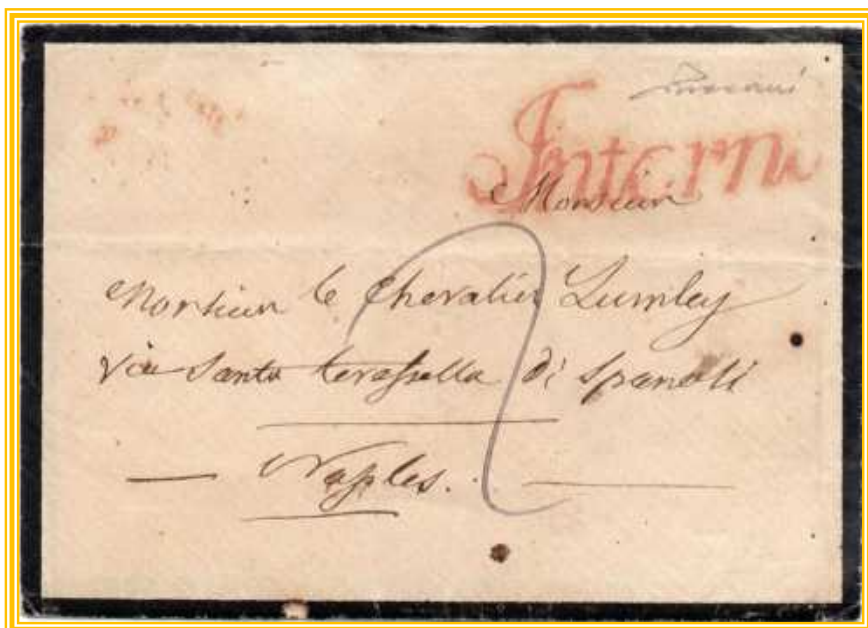 Interni
Monsieur
Monsieur le Chevalier Lumley
Via Santa Teresella di Spanoli
2
Naples.